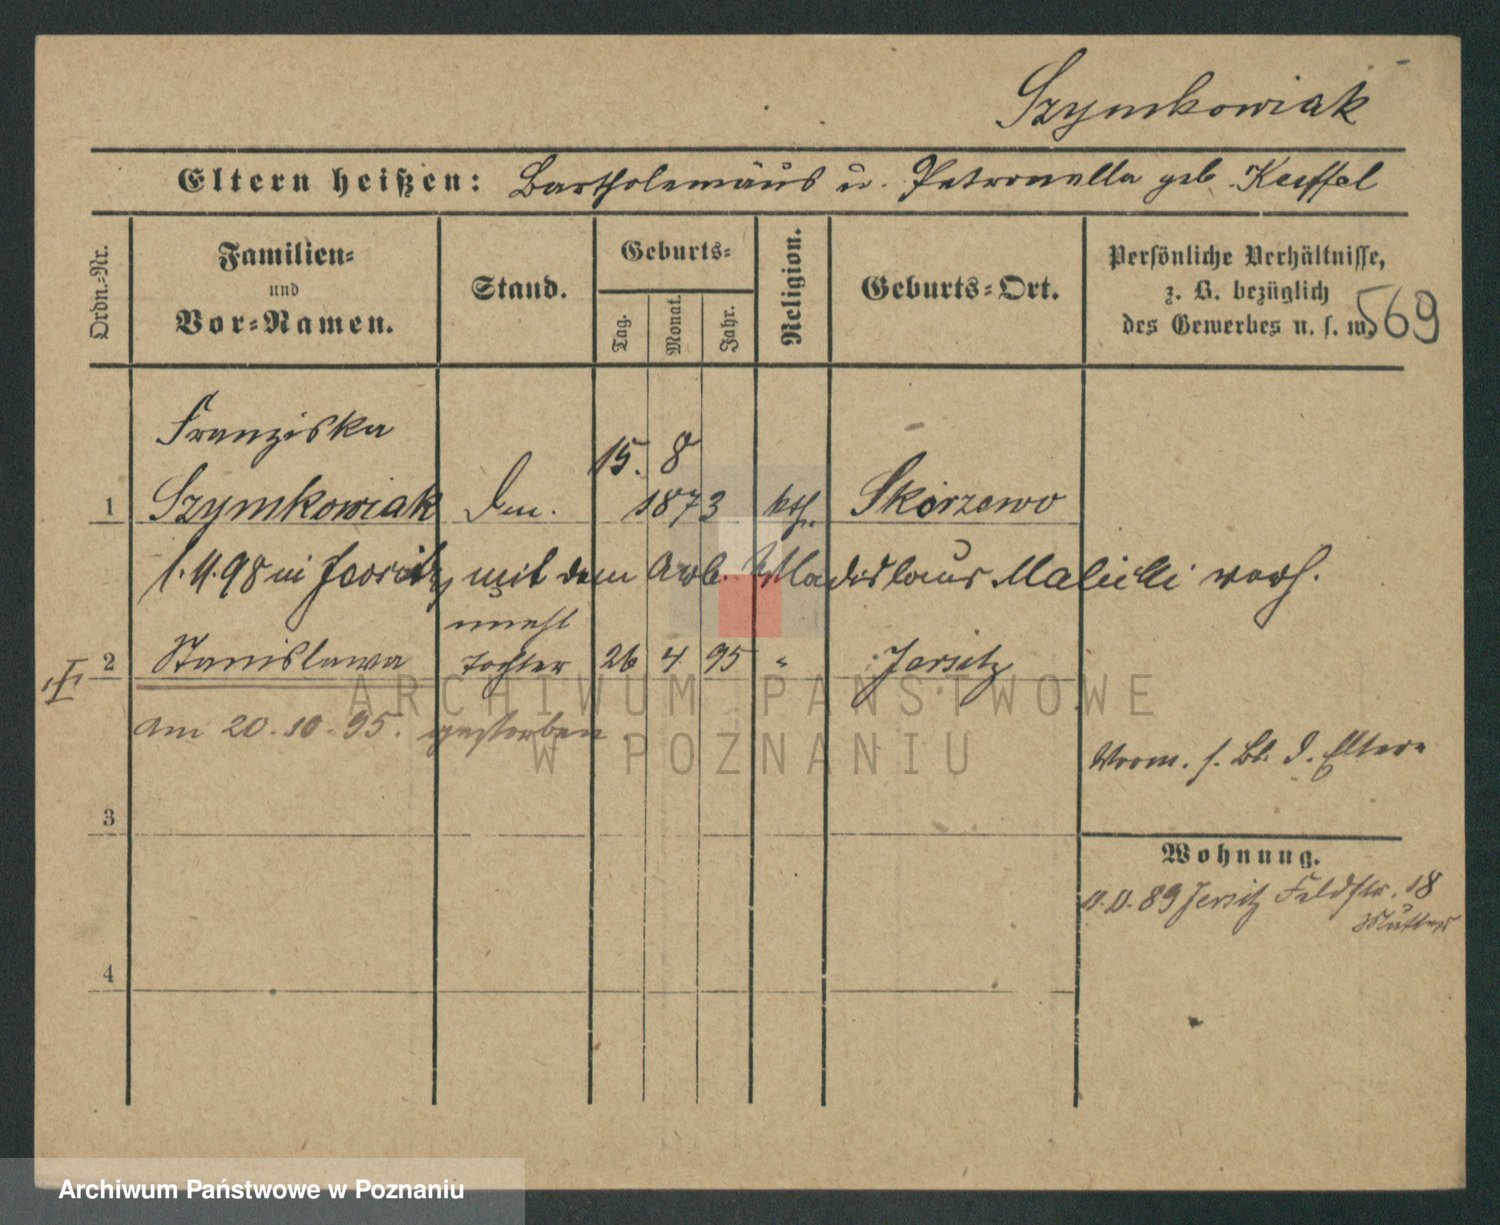 Szymkowiak
Eltern heißen: Bartholemäus u. Petronella geb. Keiffel
Ordn.-Nr.
Familien-
und
Vor-Namen.
Stand.
Geburts-
Tag.
Monat.
Jahr.
Religion.
Geburts-Ort.
Persönliche Verhältnisse,
z. B. bezüglich
des Gewerbes u. s. w.
569
Franziska
15. 8
1 Szymkowiak 1873 kth. Skórzewo
1.4.98 in Jersitz mit dem Arb. Wladislaus Malicki verh.
unehl
2 Stanislawa Tochter 26 4 95 " Jersitz
am 20.10.95. gestorben
Vorm. s. Bl. d. Eltern
3
Wohnung.
89 Jersitz Feldstr. 18
Mutter
4
ARCHIWUM PAŃSTWOWE
W POZNANIU
Archiwum Państwowe w Poznaniu